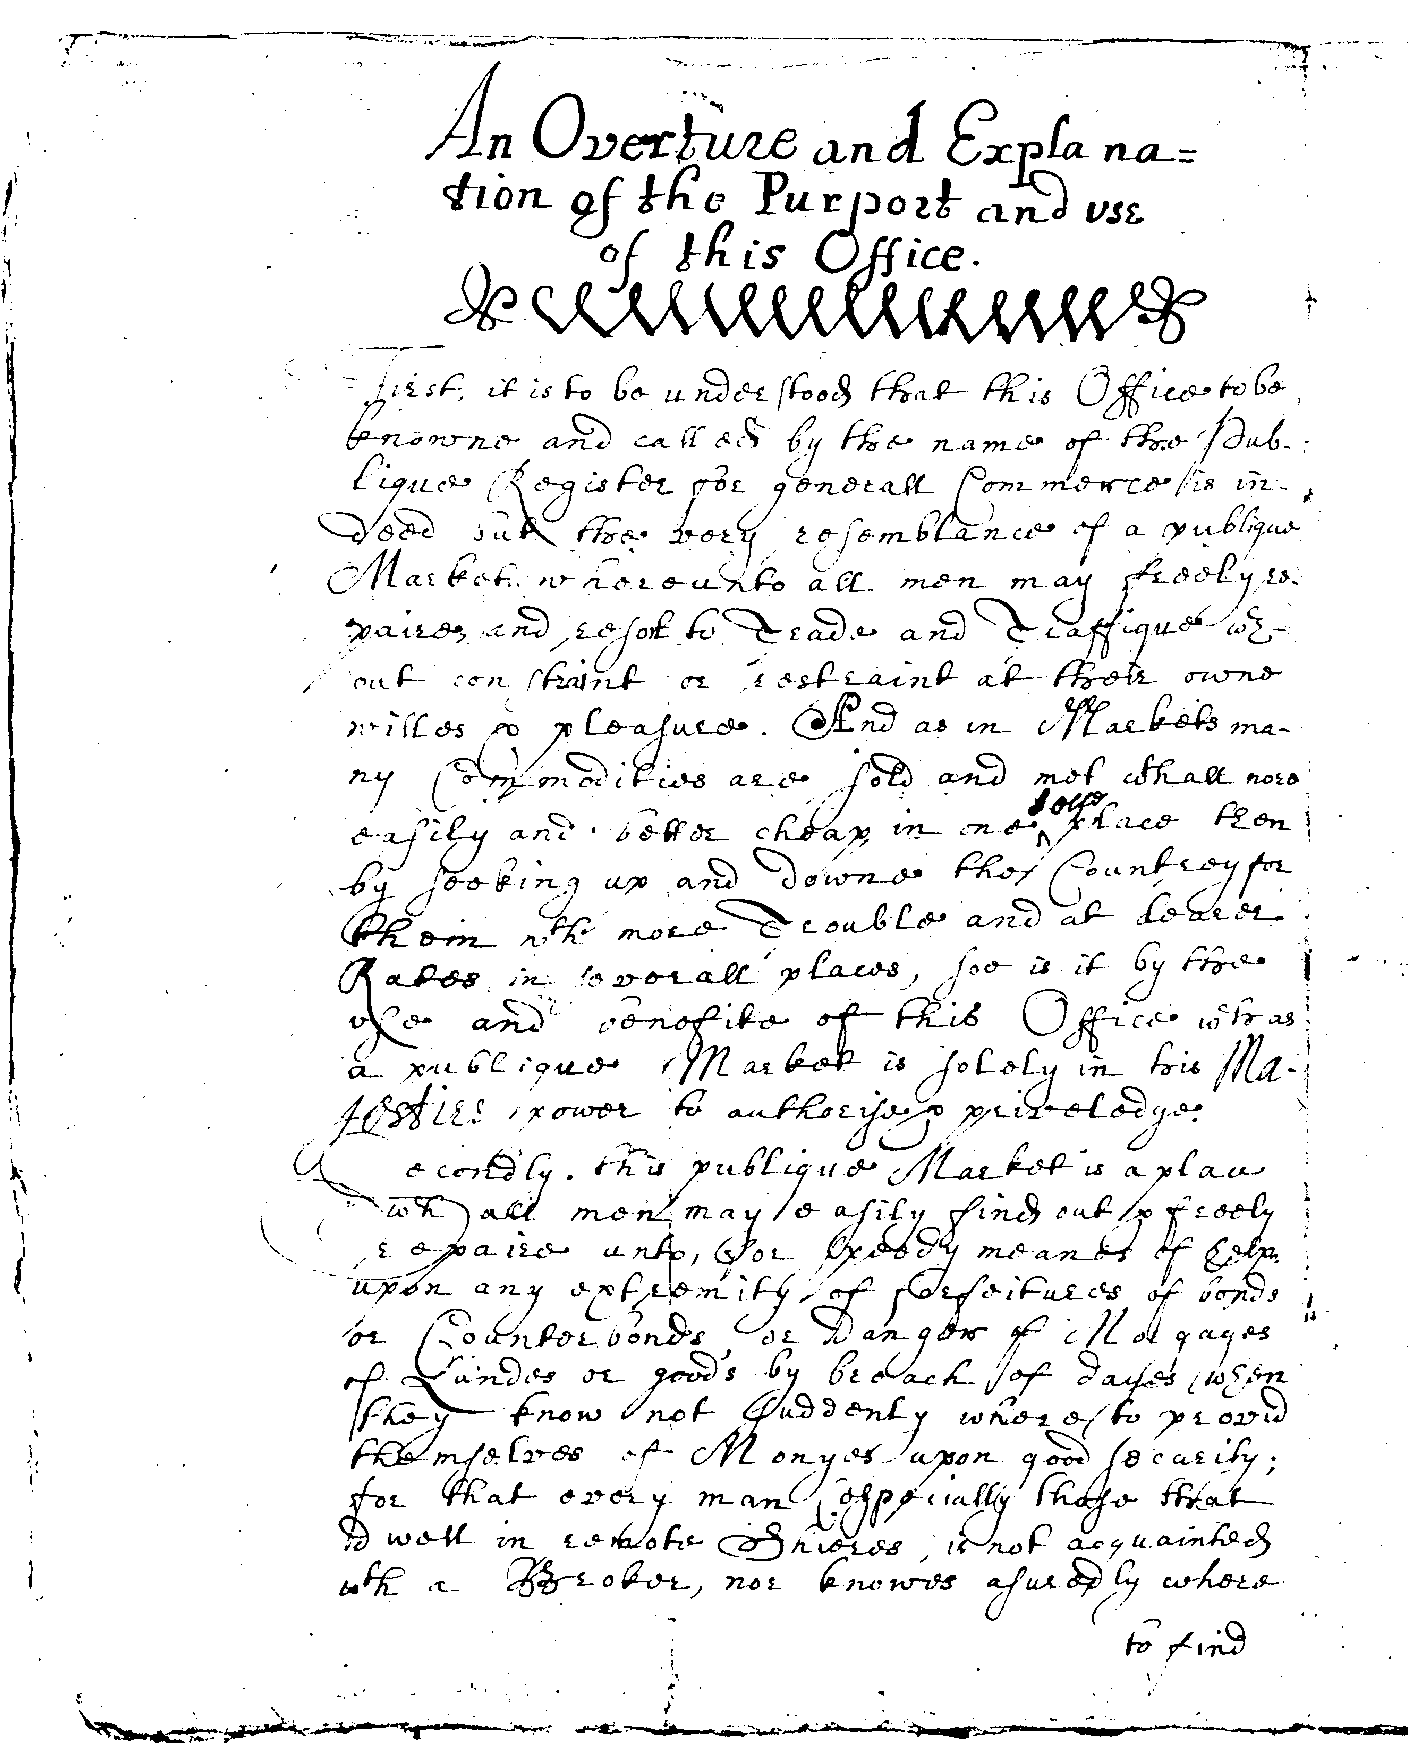 An Overture and Explana=
tion of the Purport and vse
of this Office.
First, it is to be understood that this Office to be
knowne and called by the name of the Pub-
lique Register for generall Commerce is in-
deed but the very resemblance of a publique
Market whereunto all men may freely re-
paire, and resort to Trade and Traffique wth-
out constraint or restraint at their owne
willes & pleasure. And as in Markets ma-
ny Commodities are sold and met wthall more
easily and better cheap in one selfe place then
by seeking up and downe the Countrey for
them wth more Trouble and at dearer
Rates in severall places, soe is it by the
vse and benefite of this Office wch as
a publique Market is solely in his Ma-
jesties power to authorise & priveledge.
Secondly. this publique Market is a place
wch all men may easily find out & freely
repaire unto, for speedy meanes of help
upon any extremity of forfeitures of bonds
or Counterbonds or danger of Morgages
of Landes or goods by breach of dayes when
they know not suddenly where to provid
themselves of Monyes upon good security;
for that every man especially those that
dwell in remote Shieres, is not acquainted
wth a Broker, nor knowes asuredly where
to find